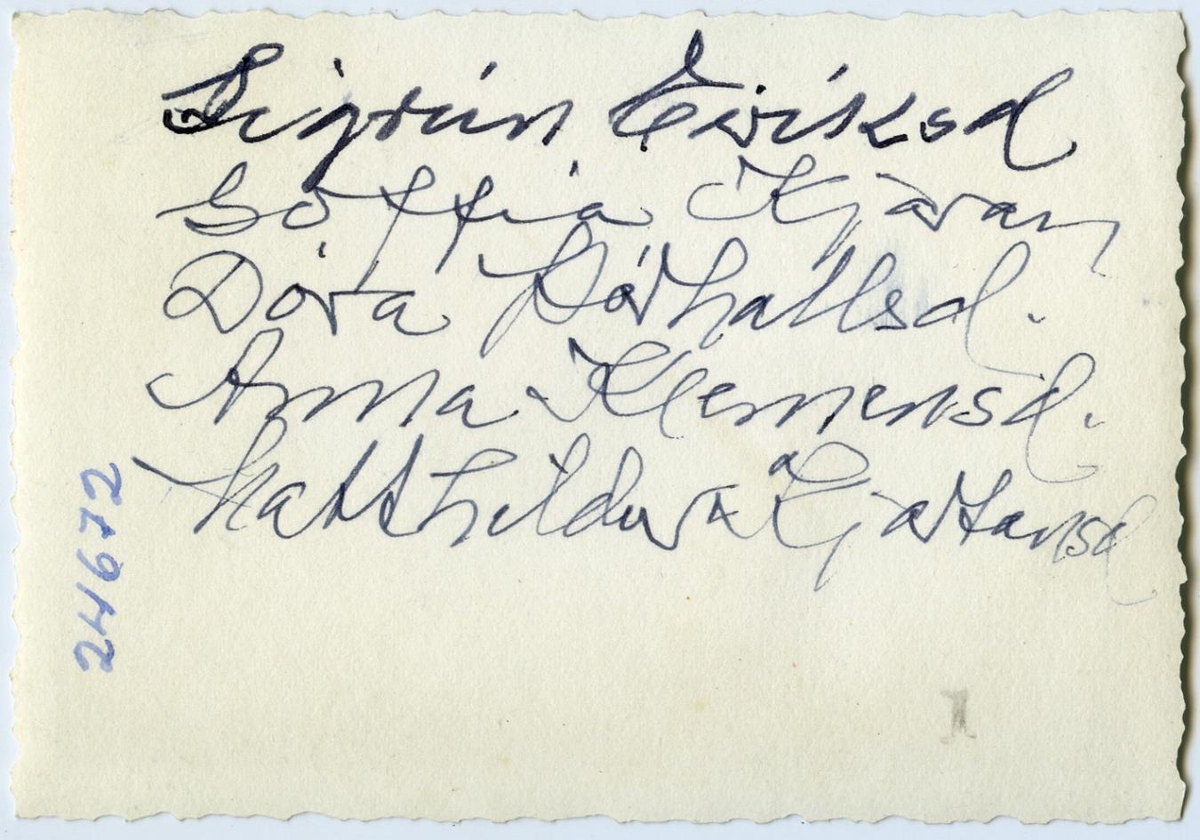 Sigrún Eiríksd
Soffia Kjaran
Dóra Þórhallsd.
Anna Klemensd.
Matthildur Kjartansd
24672
1